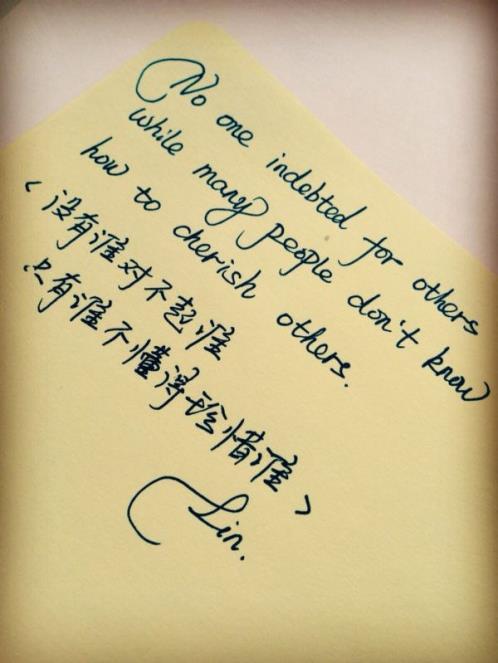 No one indebted for others
while many people don't know
how to cherish others.
<没有谁对不起谁
只有谁不懂得珍惜谁>
Lin.